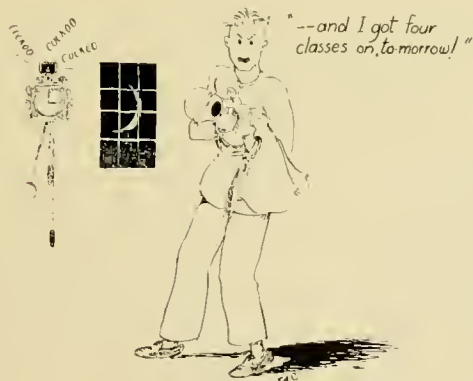 CUCKOO
CUCKOO
CUCKOO
"--and I got four
classes on to-morrow!"